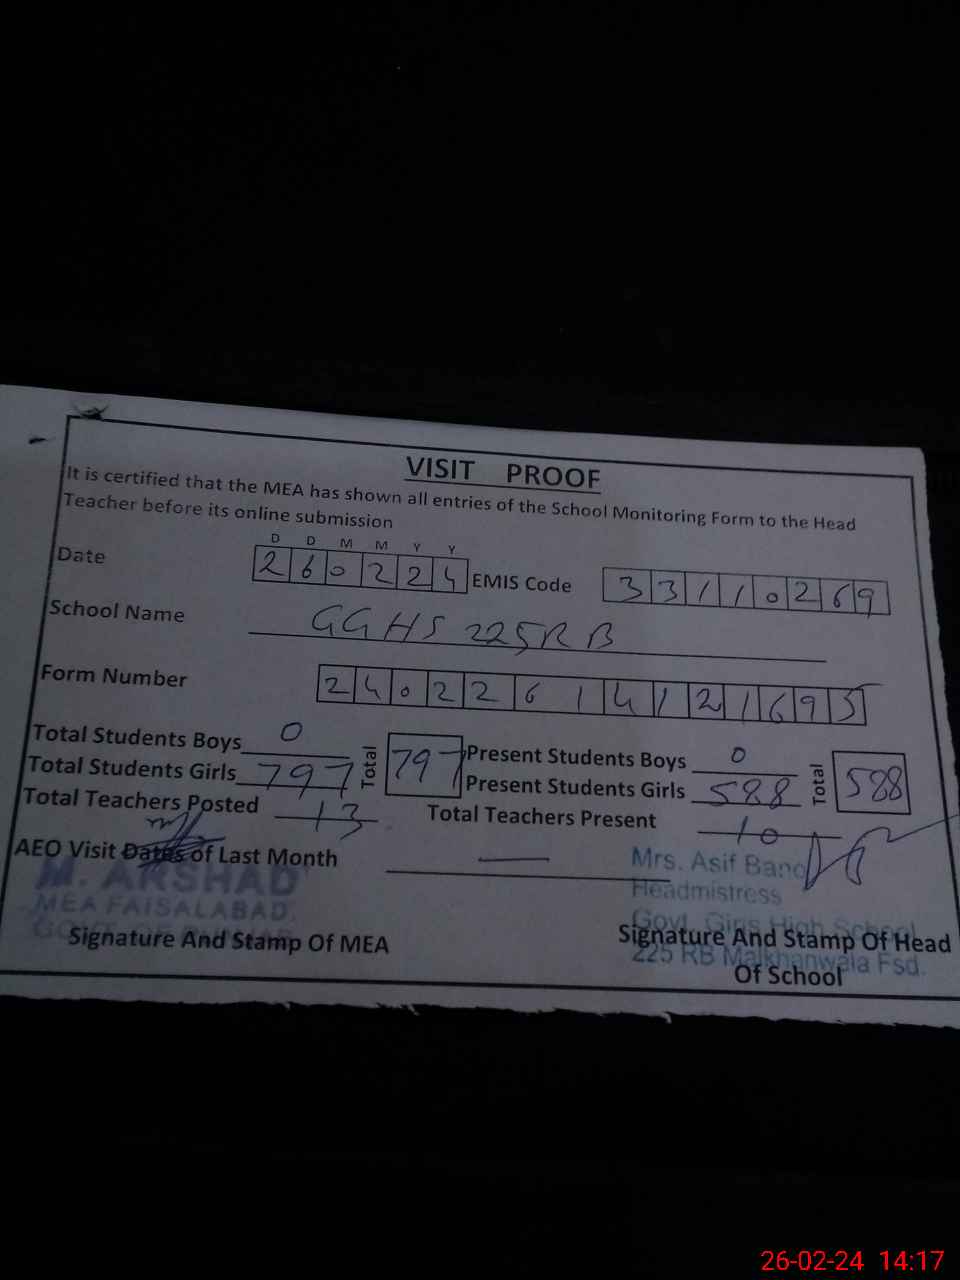 VISIT PROOF
It is certified that the MEA has shown all entries of the School Monitoring Form to the Head
Teacher before its online submission
D D M M Y Y
Date 260224 EMIS Code 33110269
School Name GGHS 225RB
Form Number 24022614121695
Total Students Boys 0 Total 797 Present Students Boys 0 Total 588
Total Students Girls 797 Present Students Girls 588
Total Teachers Posted 13 Total Teachers Present 10
AEO Visit Dates of Last Month —
M. ARSHAD
MEA FAISALABAD
Signature And Stamp Of MEA
Mrs. Asif Bano
Headmistress
Govt. Girls High School
225 RB Malkhanwala Fsd.
Signature And Stamp Of Head
Of School
26-02-24 14:17